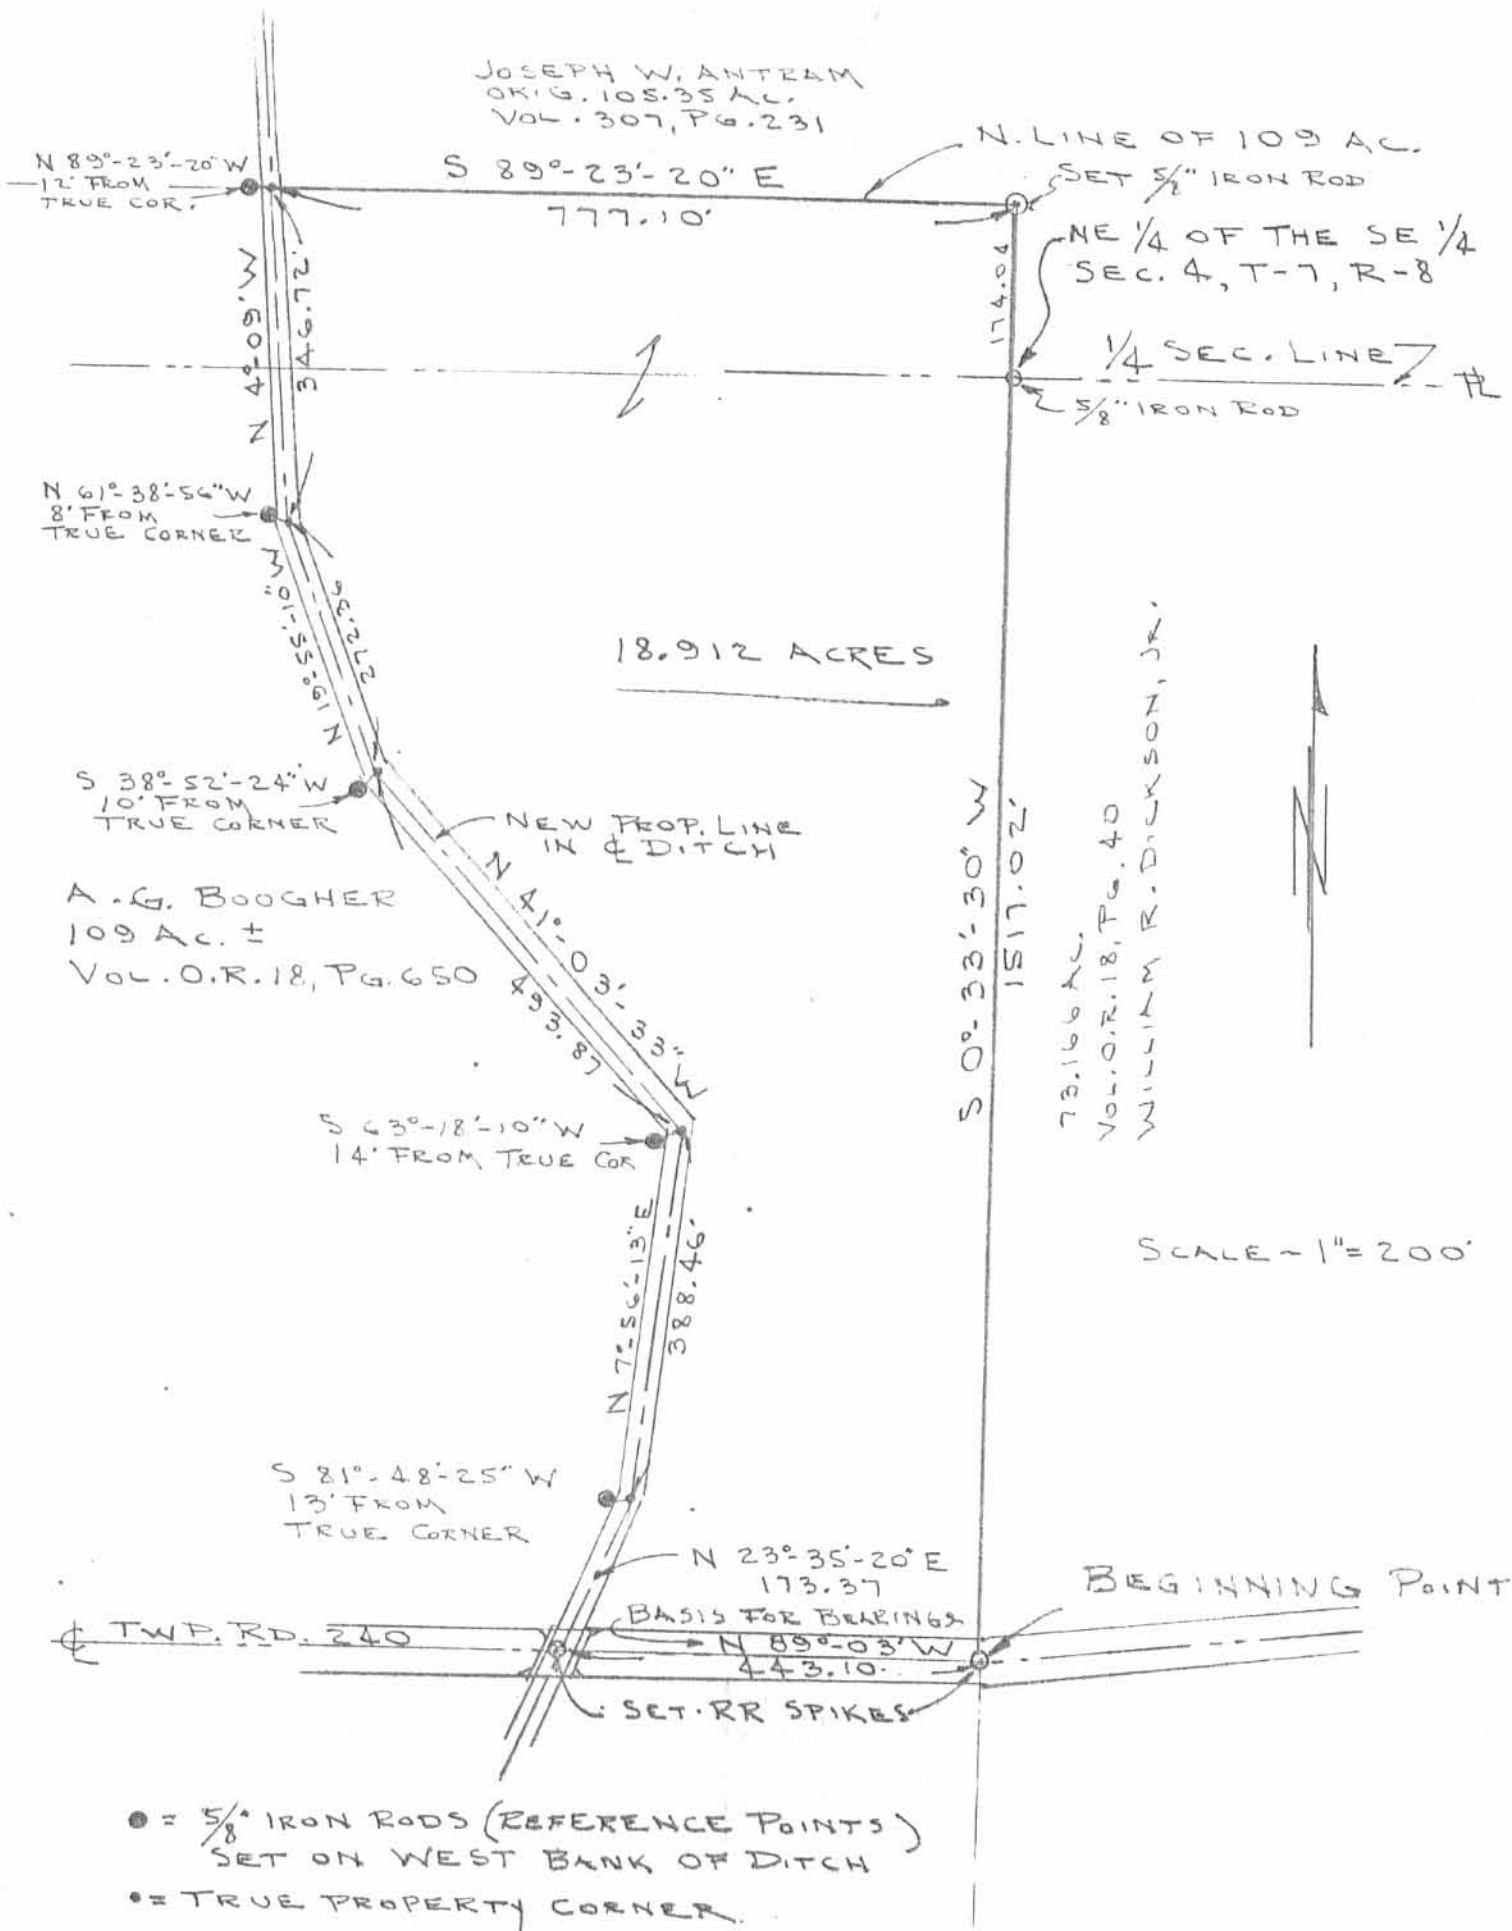 JOSEPH W. ANTRAM
ORIG. 105.35 AC.
VOL. 307, PG. 231
N. LINE OF 109 AC.
N 89°-23'-20" W
12' FROM
TRUE COR.
S 89°-23'-20" E
777.10'
SET 5/8" IRON ROD
NE 1/4 OF THE SE 1/4
SEC. 4, T-7, R-8
174.04
N 4°-09' W
346.72'
1/4 SEC. LINE
PL
5/8" IRON ROD
N 61°-38'-56" W
8' FROM
TRUE CORNER
N 19°-55'-10" W
272.36
18.912 ACRES
S 38°-52'-24" W
10' FROM
TRUE CORNER
NEW PROP. LINE
IN ℄ DITCH
N 41°-03'-33" W
493.87
A. G. BOOGHER
109 AC. ±
VOL. O.R. 18, PG. 650
S 0°-33'-30" W
1517.02'
73.166 AC.
VOL. O.R. 18, PG. 40
WILLIAM R. DICKSON, JR.
N
S 63°-18'-10" W
14' FROM TRUE COR
N 7°-56'-13" E
388.46'
SCALE ~ 1" = 200'
S 81°-48'-25" W
13' FROM
TRUE CORNER
N 23°-35'-20" E
173.37
BEGINNING POINT
BASIS FOR BEARINGS
℄ TWP. RD. 240
N 89°-03' W
443.10
SET RR SPIKES
● = 5/8" IRON RODS (REFERENCE POINTS)
SET ON WEST BANK OF DITCH
• = TRUE PROPERTY CORNER